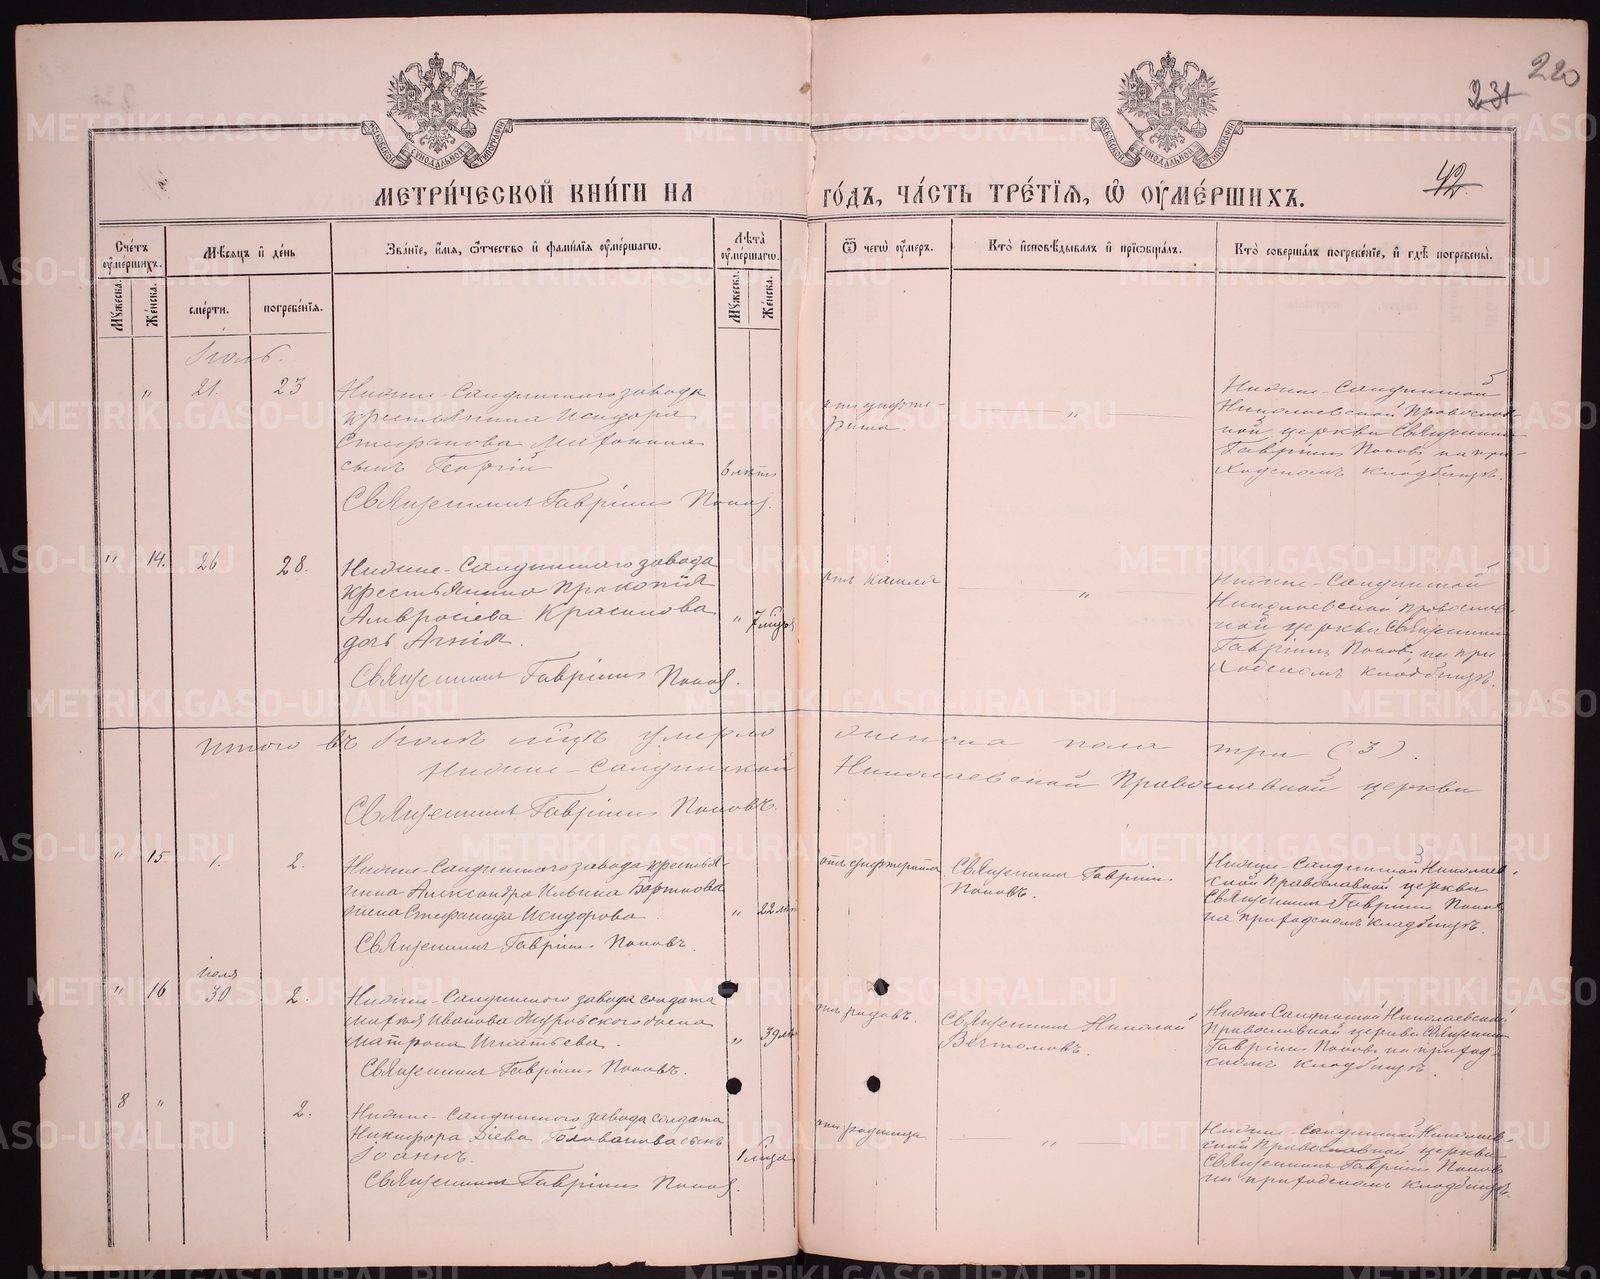 220
231
42
МОСКОВСКОЙ СѴНОДАЛЬНОЙ ТИПОГРАФІИ
МОСКОВСКОЙ СѴНОДАЛЬНОЙ ТИПОГРАФІИ
МЕТРИ́ЧЕСКОЙ КНИ́ГИ НА ГО́ДЪ, ЧА́СТЬ ТРЕ́ТІѦ, Ѡ ОУ҆МЕ́РШИХЪ.
Сче́тъ оу҆ме́ршихъ.
Мѣ́сяцъ и҆ де́нь
Зва́ніе, и҆́мя, ѻ҆́тчество и҆ фами́лія оу҆ме́ршагѡ.
Лѣ́та оу҆ме́ршагѡ.
Ѿ чегѡ̀ оу҆́меръ.
Кто̀ и҆сповѣ́дывалъ и҆ прїѡбща́лъ.
Кто̀ соверша́лъ погребе́ніе, и҆ гдѣ̀ погребены̀.
Мꙋ́жеска.
Же́нска.
сме́рти.
погребе́нїя.
Мꙋ́жеска.
Же́нска.
Іюль.
" 21. 23 Нижне-Салдинского завода
крестьянина Исидора
Стефанова
сынъ Георгій
6 лѣтъ
Священникъ Гавріилъ Поповъ.
отъ дифте-
рита
"
Нижне-Салдинской
Николаевской Православ-
ной церкви Священникъ
Гавріилъ Поповъ на при-
ходскомъ кладбищѣ.
" 14. 26 28. Нижне-Салдинского завода
крестьянина Прокопія
Амвросіева Красилова
дочь Агнія.
" 7 мѣся
Священникъ Гавріилъ Поповъ.
отъ кашля
"
Нижне-Салдинской
Николаевской Православ-
ной церкви Священникъ
Гавріилъ Поповъ, на при
ходскомъ кладбищѣ.
Итого въ Іюлѣ мѣсяцѣ умерло женска пола три (3).
Нижне-Салдинской Николаевской Православной церкви
Священникъ Гавріилъ Поповъ.
" 15. 1. 2. Нижне-Салдинского завода крестья-
нина Александра Ильина
жена Стефанида Исидорова
" 22 лѣтъ
Священникъ Гавріилъ Поповъ.
отъ дифтерита
Священникъ Гавріилъ
Поповъ.
Нижне-Салдинской Николаев-
ской Православной церкви
Священникъ Гавріилъ Поповъ
на приходскомъ кладбищѣ.
іюля
" 16 30 2. Нижне-Салдинского завода солдата
Иванова жена
Матрона Игнатьева.
" 39 лѣ
Священникъ Гавріилъ Поповъ.
отъ родовъ.
Священникъ Николай
Нижне-Салдинской Николаевской
Православной церкви Священникъ
Гавріилъ Поповъ на приход-
скомъ кладбищѣ.
8 " 2. Нижне-Салдинского завода солдата
Никифора Голованова сынъ
Іоаннъ.
Священникъ Гавріилъ Поповъ.
отъ родимца
"
Нижне-Салдинской Николаев-
ской Православной церкви
Священникъ Гавріилъ Поповъ
на приходскомъ кладбищѣ.
METRIKI.GASO-URAL.RU